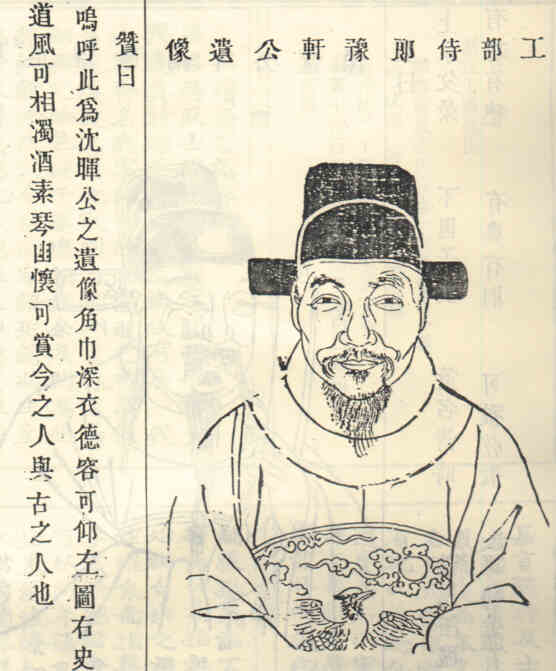 工部侍郎豫軒公遺像
贊曰
嗚呼此爲沈暉公之遺像角巾深衣德容可仰左圖右史
道風可相濁酒素琴幽懷可賞今之人與古之人也